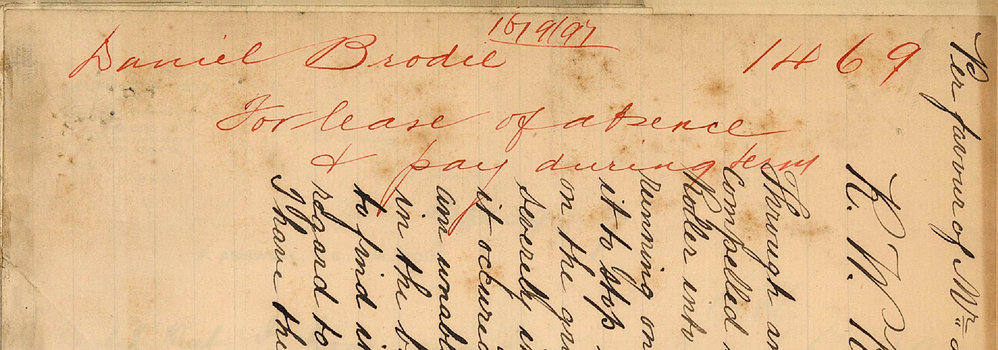 16/9/97
Daniel Brodie 1469
For leave of absence
& pay during term
Per favour of Mr
K. W.
Through an
Compelled
Roller into
running on
it to stop
on the
severely
it occured
am unable
in the
to find
regard to
I have the